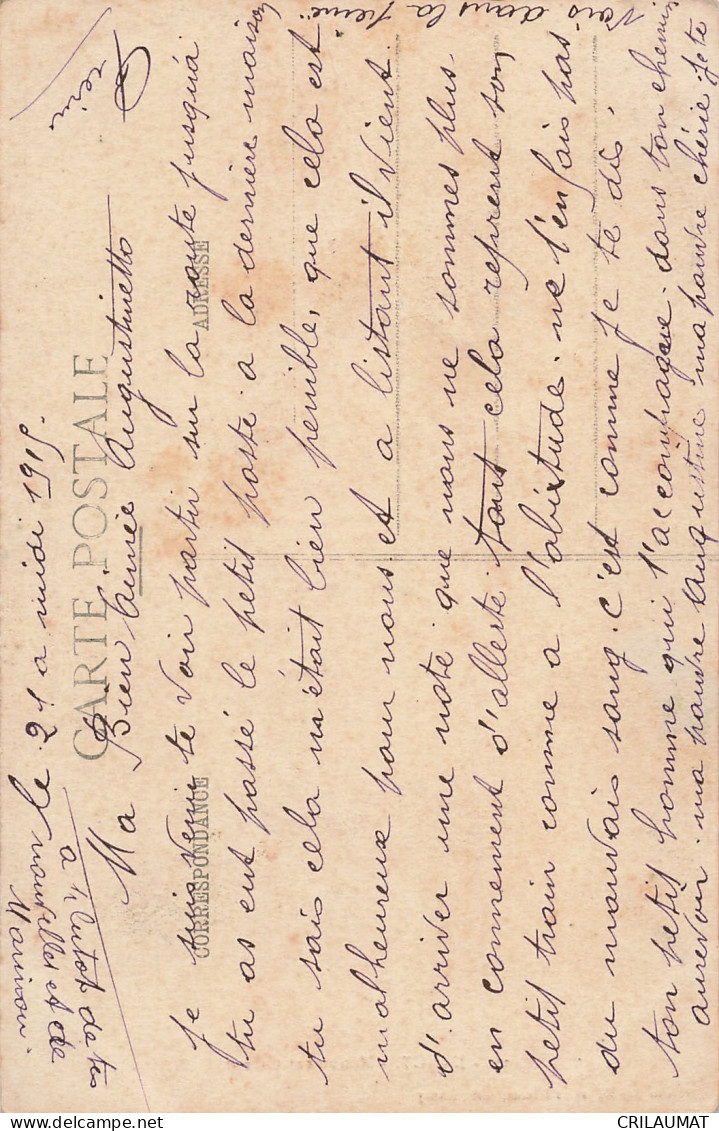 le 21 a midi 1915.
CARTE POSTALE
Ma Bien Aimée Augustinette
CORRESPONDANCE
ADRESSE
Je suis venu te voir partir sur la route jusqu'à
tu as eut passé le petit poste a la dernière maison
tu sais cela m'était bien penible, que cela est
malheureux pour nous et a listant il vient
d'arriver une note que nous ne sommes plus
en connement d'allerte tout cela reprent son
petit train comme a l'abitude. ne t'en fais pas
du mauvais sang. c'est comme je te dis.
ton petit homme qui t'accompagne dans ton chemin
aurevoir ma pauvre Augustine ma pauvre chérie je te
vois dans la
a de tes
nouvelles et de
CRILAUMAT